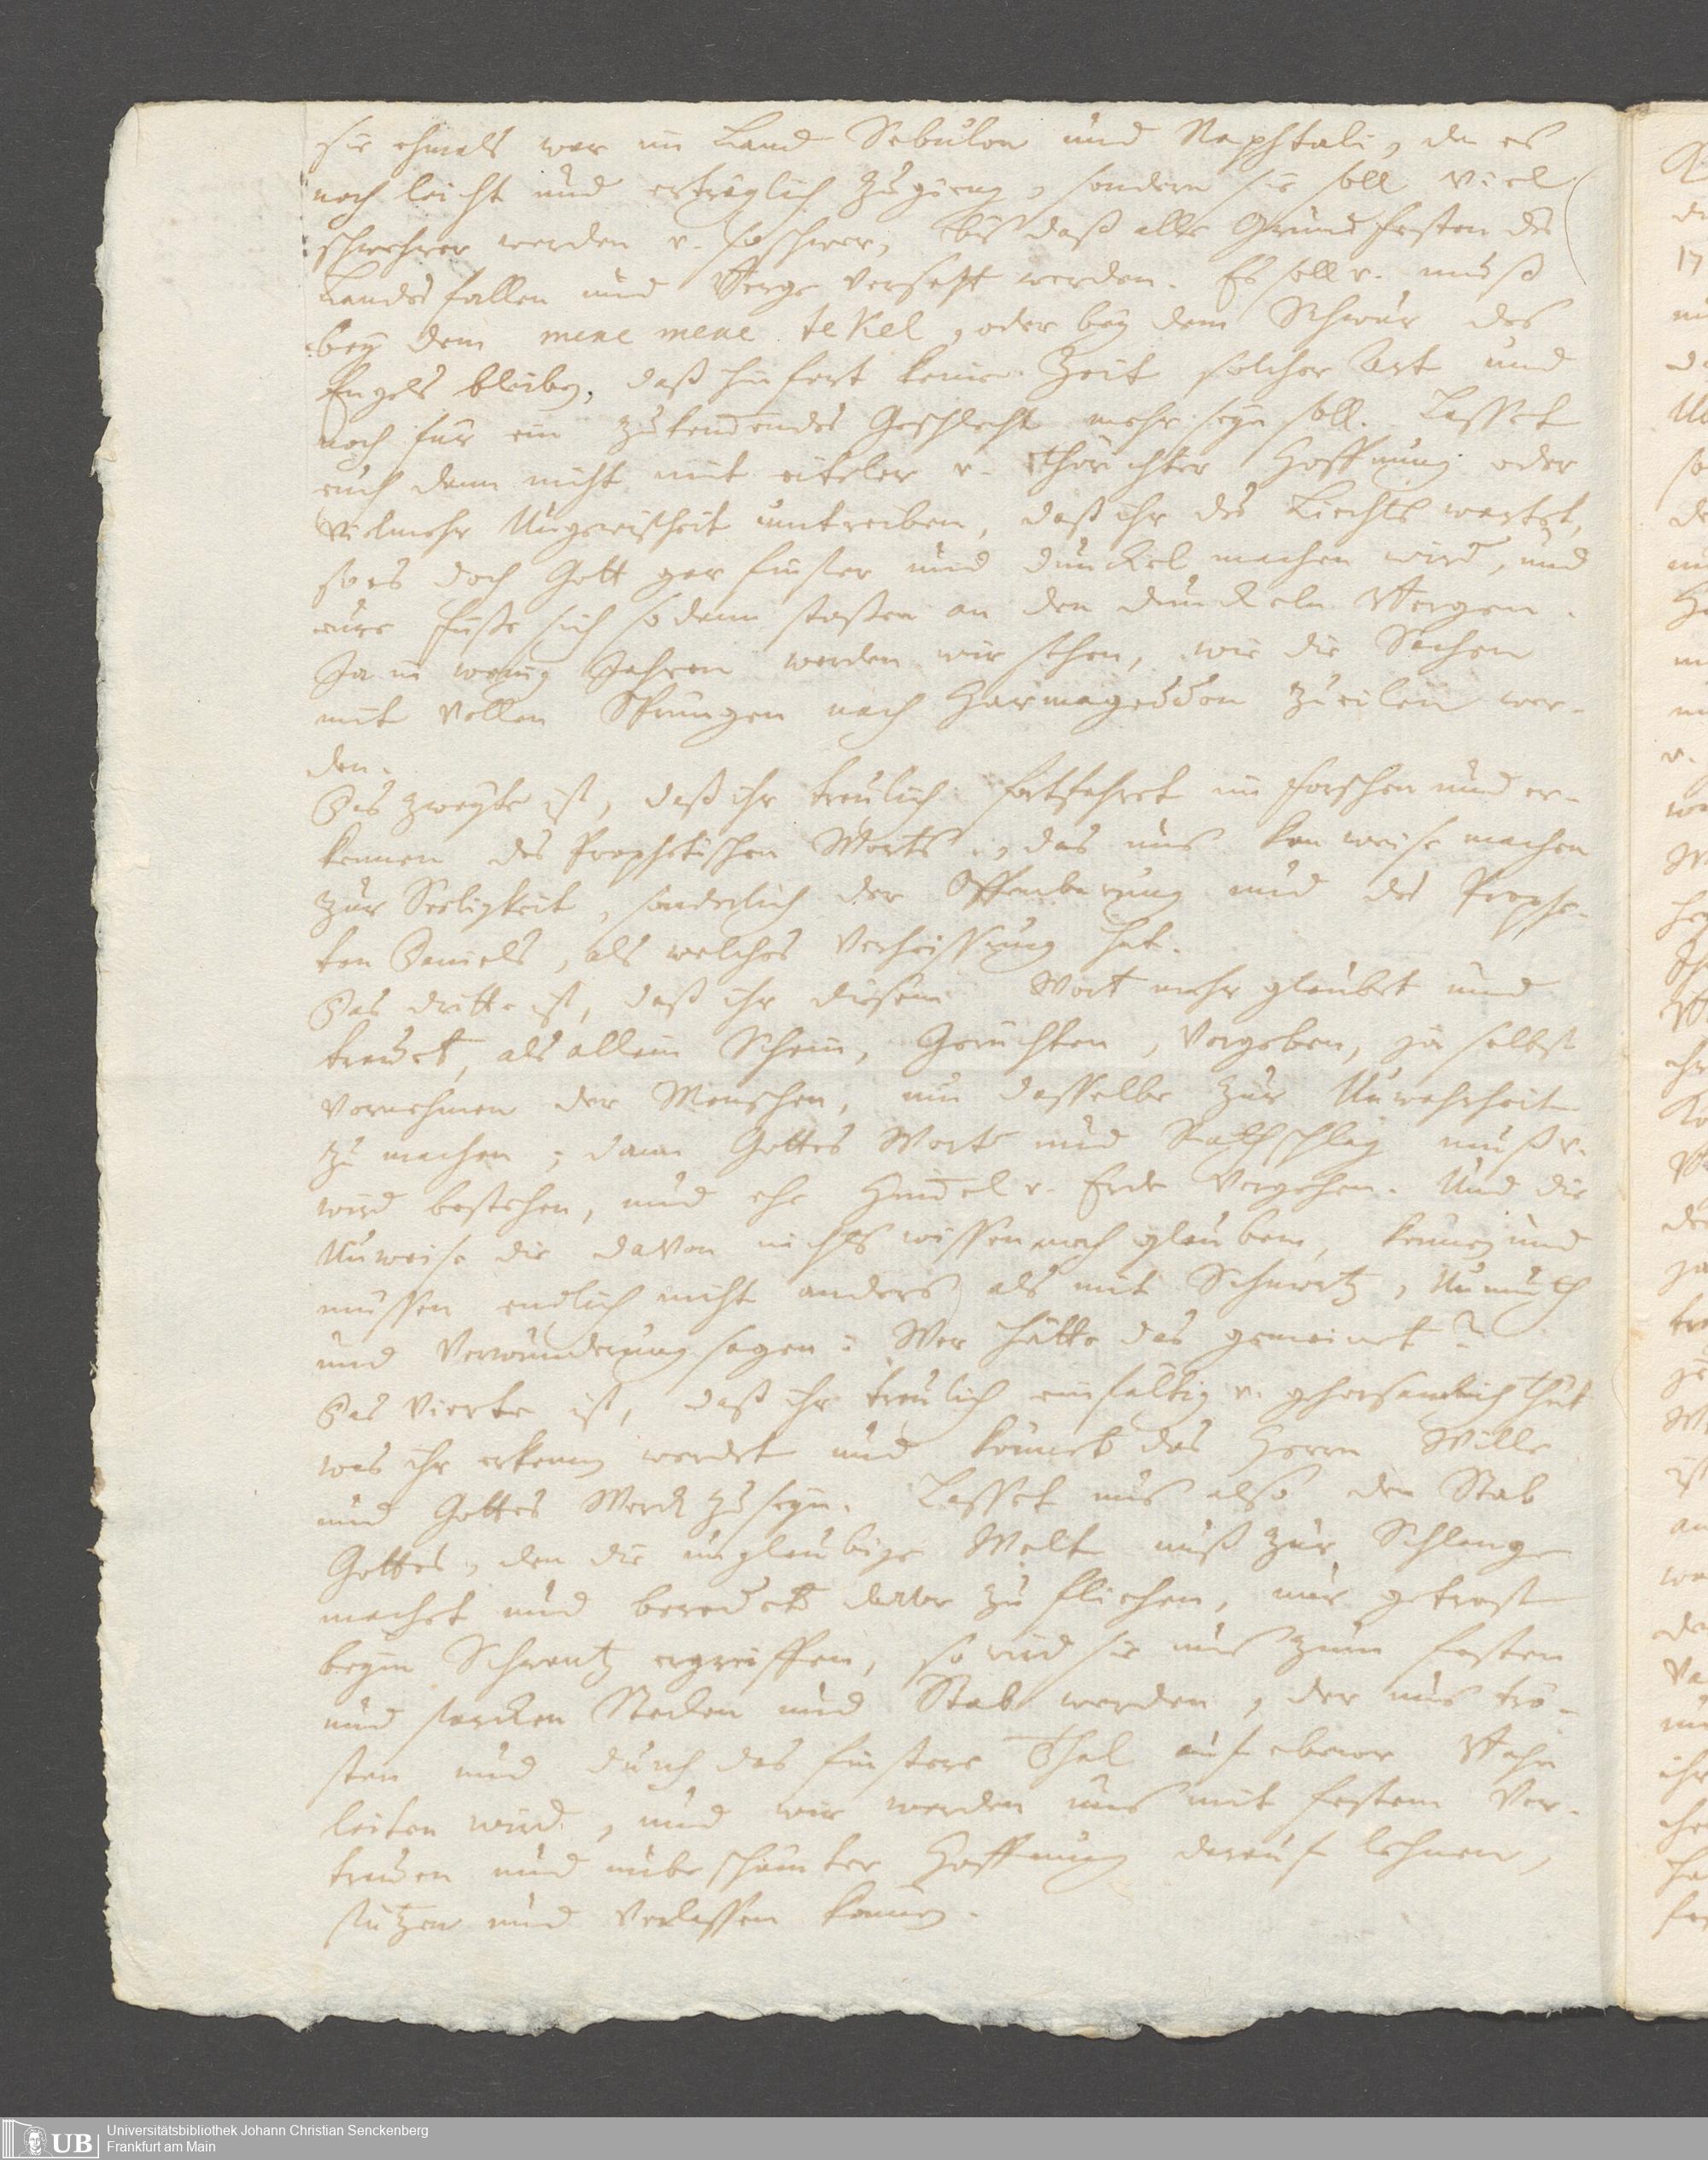 sie ehmals war im Land Sebulon und Naphtali, da es
noch leicht und erträglich zugieng, sondern sie soll viel
schwehrer werden v. so schwer, biß daß alle Grund festen des
Landes fallen und Berge versetzt werden. Es soll v. muß
bey dem mene mene tekel, oder bey dem Schwur des
Engels bleiben, daß hinfort keine Zeit solcher Art und
noch für ein zukom̄endes Geschlecht mehr seyn soll. Lasset
euch dann nicht mit eiteler v. thörichter Hoffnung oder
vielmehr Ungewißheit umtreiben, daß ihr des Liechts wartet,
so es doch Gott gar finster und dunckel machen wird, und
eure Füße sich sodann stoßen an den dunckeln Bergen.
Ja in wenig Jahren werden wir sehen, wie die Sachen
mit vollen Sprüngen nach Harmageddon zueilen wer-
den.
Das zweyte ist, daß ihr treulich fortfahret im forschen und er-
kennen des Prophetischen Worts, das uns kan weise machen
zur Seeligkeit, sonderlich der Offenbarung und des Prophe-
ten Daniels, als welches Verheissung hat.
Das dritte ist, daß ihr diesem Wort mehr glaubet und
trauet, als allem Schein, Gerüchten, Vorgeben, ja selbst
Vornehmen der Menschen, um dasselbe zur Unwahrheit
zu machen; dann Gottes Wort und Rathschlag muß v.
wird bestehen, und ehe Him̄el v. Erde vergehen. Und die
Unweise die davon nichts wissen noch glauben, können und
müssen endlich nicht anders als mit Schmertz, Unmuth
und Verwunderung sagen: Wer hätte das gemeinet?
Das Vierte ist, daß ihr treulich einfältig v. gehorsamlich thut
was ihr erkennen werdet und könnet das Herrn Wille
und Gottes Werck zu seyn. Lasset uns also den Stab
Gottes, den die unglaubige Welt uns zur Schlange
machet und beredet davor zu fliehen, nur getrost
beym Schwantz ergreiffen, so wird sie uns zum festen
und starcken Stecken und Stab werden, der uns trö-
sten und durch das finstere Thal auf ebener Bahn
leiten wird, und wir werden uns mit festem Ver-
trauen und unbeschämter Hoffnung darauf lehnen,
stützen und verlassen können.
Universitätsbibliothek Johann Christian Senckenberg
Frankfurt am Main
UB